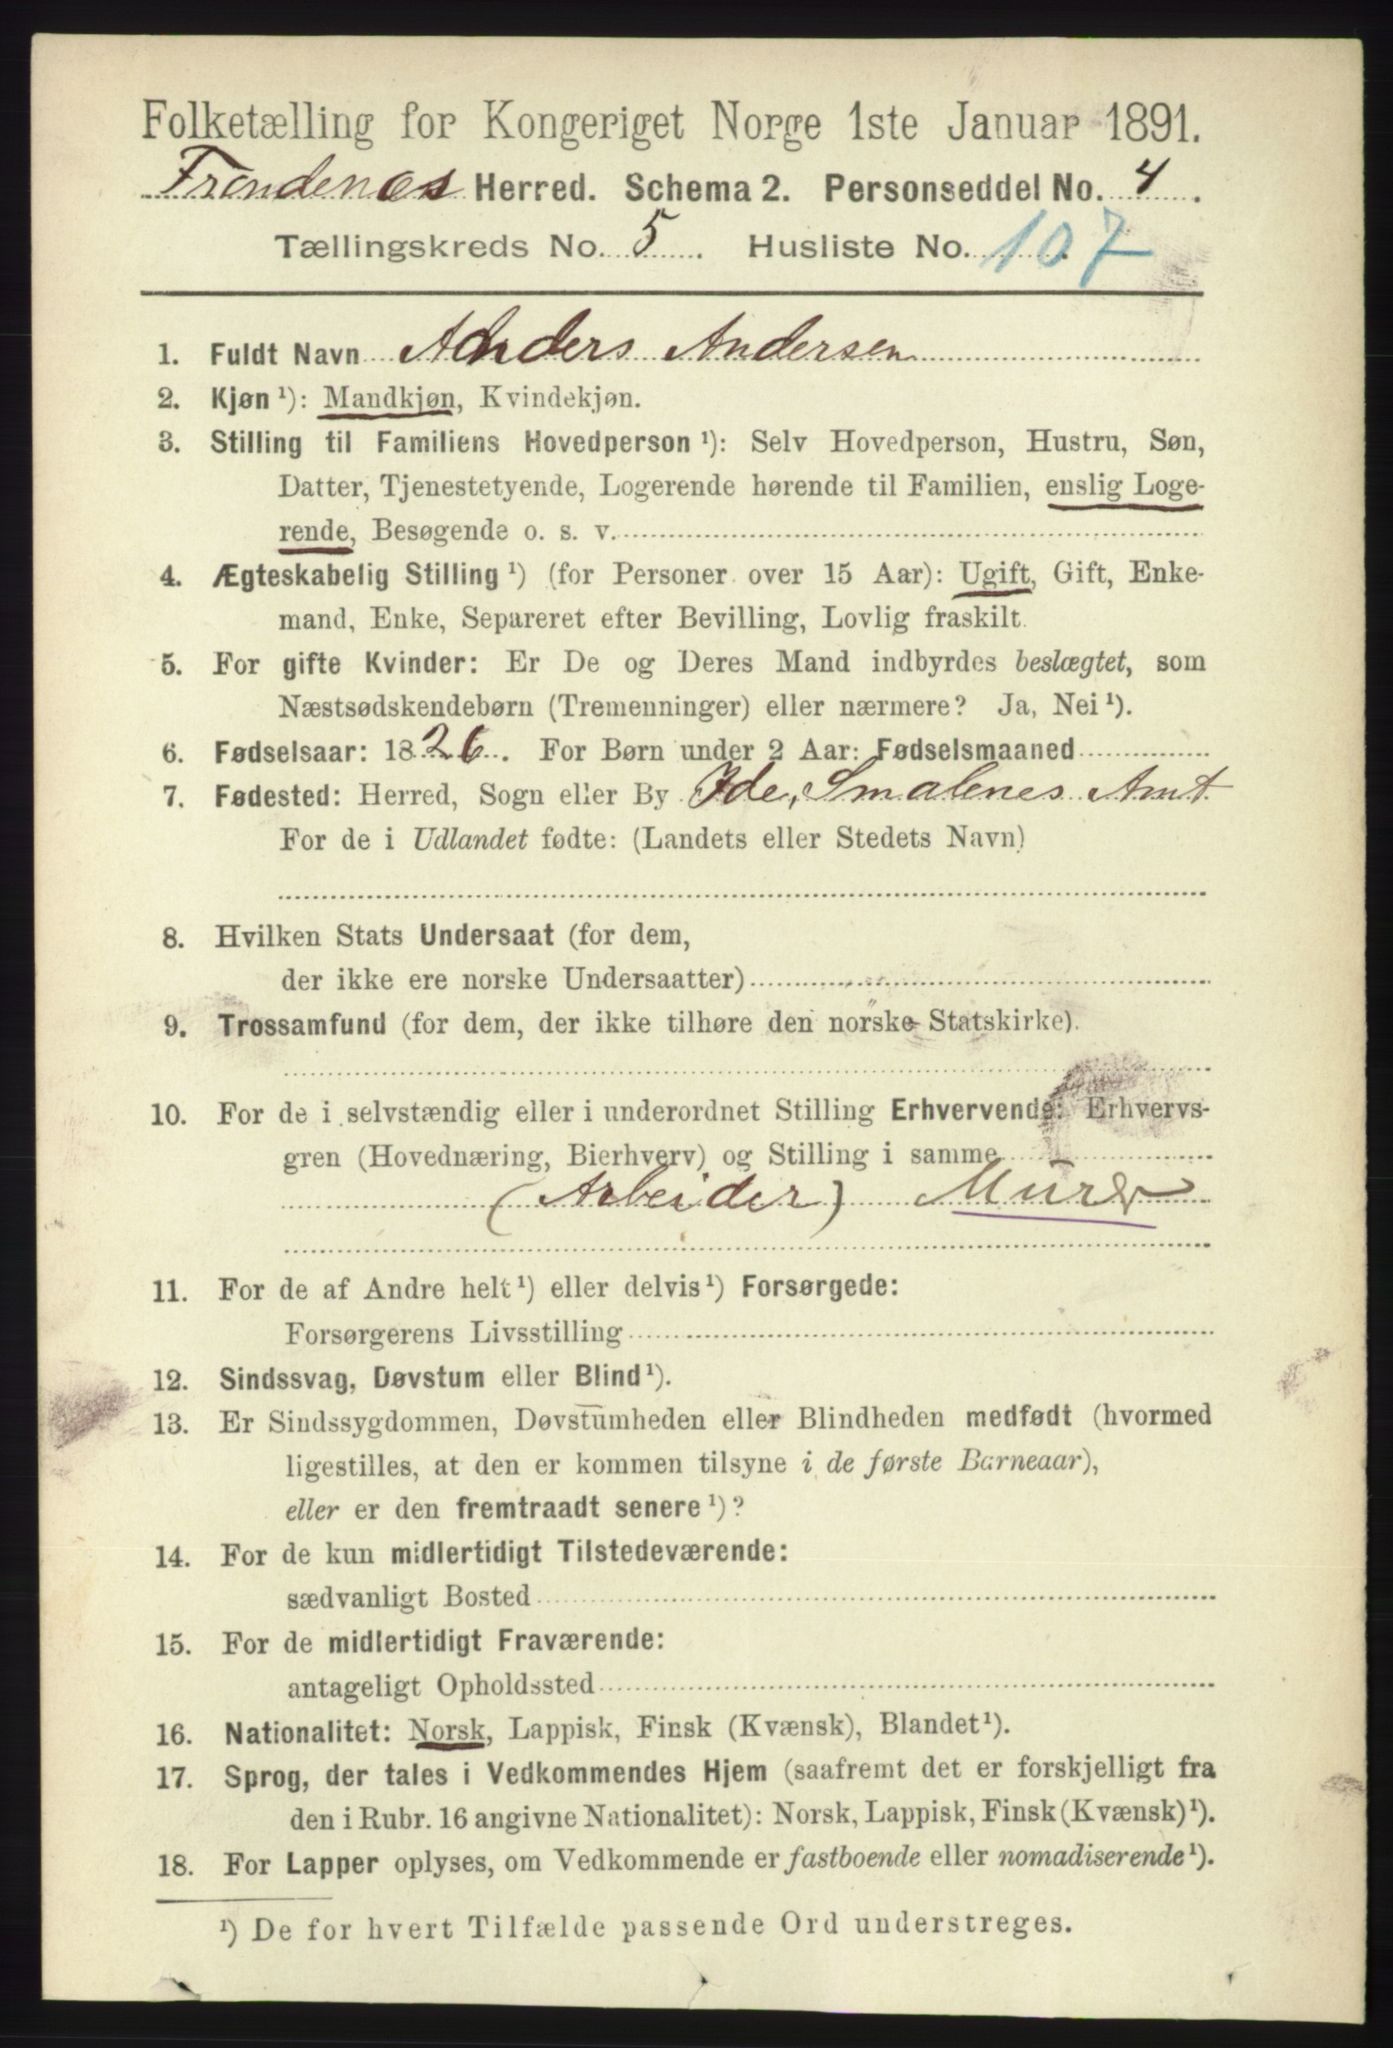 Folketælling for Kongeriget Norge 1ste Januar 1891.
Trondenes Herred. Schema 2. Personseddel No. 4.
Tællingskreds No. 5. Husliste No. 107.
1. Fuldt Navn Anders Andersen
2. Kjøn ¹): Mandkjøn, Kvindekjøn.
3. Stilling til Familiens Hovedperson ¹): Selv Hovedperson, Hustru, Søn,
Datter, Tjenestetyende, Logerende hørende til Familien, enslig Loge-
rende, Besøgende o. s. v.
4. Ægteskabelig Stilling ¹) (for Personer over 15 Aar): Ugift, Gift, Enke-
mand, Enke, Separeret efter Bevilling, Lovlig fraskilt.
5. For gifte Kvinder: Er De og Deres Mand indbyrdes beslægtet, som
Næstsødskendebørn (Tremenninger) eller nærmere? Ja, Nei ¹).
6. Fødselsaar: 1826. For Børn under 2 Aar: Fødselsmaaned
7. Fødested: Herred, Sogn eller By Ide, Smalenes Amt
For de i Udlandet fødte: (Landets eller Stedets Navn)
8. Hvilken Stats Undersaat (for dem,
der ikke ere norske Undersaatter)
9. Trossamfund (for dem, der ikke tilhøre den norske Statskirke).
10. For de i selvstændig eller i underordnet Stilling Erhvervende: Erhvervs-
gren (Hovednæring, Bierhverv) og Stilling i samme
(Arbeider) Murer
11. For de af Andre helt ¹) eller delvis ¹) Forsørgede:
Forsørgerens Livsstilling
12. Sindssvag, Døvstum eller Blind ¹).
13. Er Sindssygdommen, Døvstumheden eller Blindheden medfødt (hvormed
ligestilles, at den er kommen tilsyne i de første Barneaar),
eller er den fremtraadt senere ¹)?
14. For de kun midlertidigt Tilstedeværende:
sædvanligt Bosted
15. For de midlertidigt Fraværende:
antageligt Opholdssted
16. Nationalitet: Norsk, Lappisk, Finsk (Kvænsk), Blandet ¹).
17. Sprog, der tales i Vedkommendes Hjem (saafremt det er forskjelligt fra
den i Rubr. 16 angivne Nationalitet): Norsk, Lappisk, Finsk (Kvænsk) ¹).
18. For Lapper oplyses, om Vedkommende er fastboende eller nomadiserende ¹).
¹) De for hvert Tilfælde passende Ord understreges.